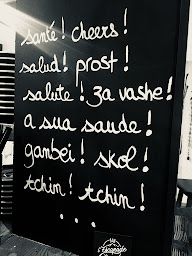 santé! cheers!
salud! prost!
salute! za vashe!
a sua saude!
ganbei! skol!
tchin! tchin!
...